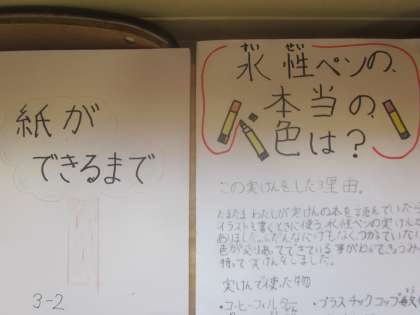 紙が
できるまで
3-2
すい せい
水性ペンの、
本当の、
色は?
この実けんをした理由。
たまたま わたしが実けんの本を読んでいたら
イラストを書くときに使う水性ペンの実けんが
ありました。
色が
持って実けんをしました。
実けんで使った物
・コーヒーフィルター
・プラスチックコップ